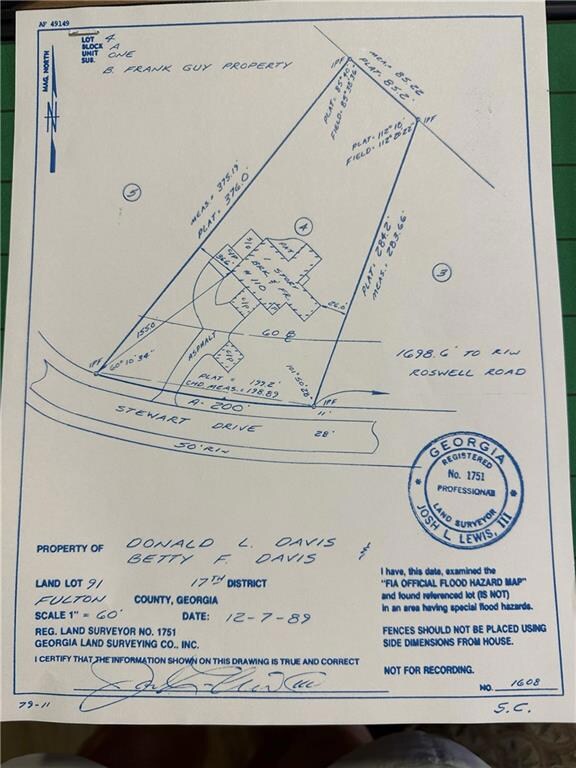 AF 49149
LOT 4
BLOCK A
UNIT ONE
SUB.
B. FRANK GUY PROPERTY
MAG. NORTH
IPF
MEAS. 85.22
PLAT. 85.2'
PLAT. 85°40'
FIELD. 85°38'36"
PLAT. 112°18'
FIELD. 112°20'22"
IPF
MEAS. 375.19'
PLAT. 376.0'
5
4
3
PLAT. 284.2'
MEAS. 283.66'
PAT.
1 STORY
BRK & FR.
# 110
26.0'
1550
60 B
ASPHALT
IPF
60°10'34"
101°50'28"
PLAT = 199.2'
CHD. MEAS. = 198.89
A- 200'
IPF
11'
1698.6' TO R/W
ROSWELL ROAD
STEWART DRIVE
28'
50' R/W
GEORGIA
REGISTERED
No. 1751
PROFESSIONAL
LAND SURVEYOR
JOSH L. LEWIS, III
PROPERTY OF DONALD L. DAVIS
BETTY F. DAVIS
LAND LOT 91 17TH DISTRICT
FULTON COUNTY, GEORGIA
SCALE 1" = 60' DATE: 12-7-89
REG. LAND SURVEYOR NO. 1751
GEORGIA LAND SURVEYING CO., INC.
I CERTIFY THAT THE INFORMATION SHOWN ON THIS DRAWING IS TRUE AND CORRECT
I have, this date, examined the
"FIA OFFICIAL FLOOD HAZARD MAP"
and found referenced lot (IS NOT)
in an area having special flood hazards.
FENCES SHOULD NOT BE PLACED USING
SIDE DIMENSIONS FROM HOUSE.
NOT FOR RECORDING.
NO. 1608
79-11
S.C.